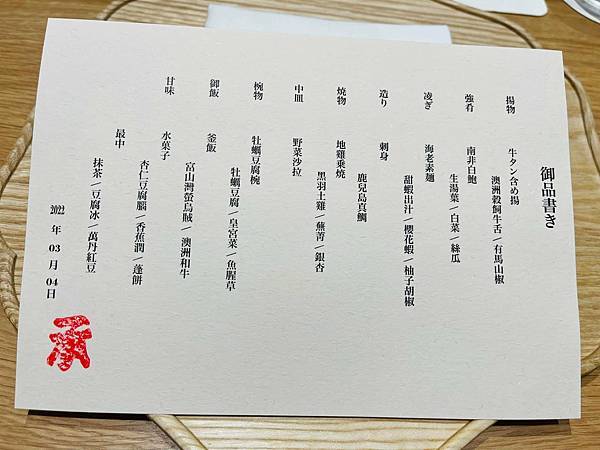 御品書き
揚物
牛タン含め揚
澳洲穀飼牛舌/有馬山椒
強肴
南非白鮑
生湯葉/白菜/絲瓜
凌ぎ
海老素麺
甜蝦出汁/櫻花蝦/柚子胡椒
造り
刺身
鹿兒島真鯛
燒物
地雞乗燒
黑羽土雞/蕪菁/銀杏
中皿
野菜沙拉
椀物
牡蠣豆腐椀
牡蠣豆腐/皇宮菜/魚腥草
御飯
釜飯
富山灣螢烏賊/澳洲和牛
甘味
水菓子
杏仁豆腐腦/香蕉潤/蓬餅
最中
抹茶/豆腐冰/萬丹紅豆
2022年03月04日
承